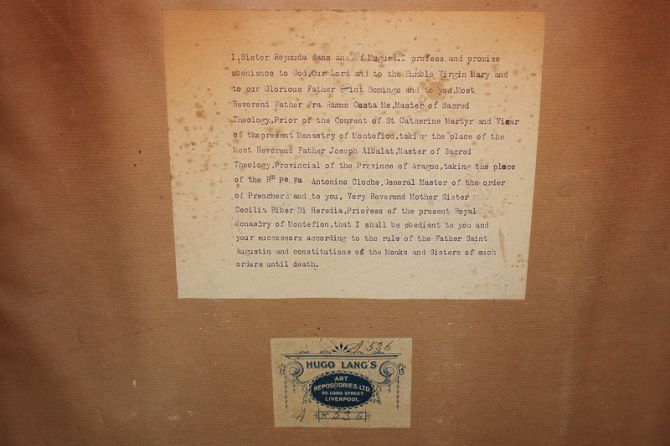 I,Sister Reymunda Sans and f Muguel.. profess and promise
obenience to God,Our Lord and to the Humble Virgin Mary and
to our Glorious Father Saint Domingo and to you,Most
Reverend Father Fra Ramon Casta Me,Master of Sacred
Theology,Prior of the Convent of St Catherine Martyr and Vicar
of the present Monastry of Montefion,taking the place of the
Most Reverend Father Joseph Albalat,Master of Sacred
Theology,Provincial of the Province of Aragon,taking the place
of the Rm Pe Fa Antonino Cloche,General Master of the order
of Preachers and to you, Very Reverend Mother Sister
Cecilia Riber Di Heredia,Prioress of the present Royal
Monastry of Montefion,that I shall be obedient to you and
your successors according to the rule of the Father Saint
Augustin and constitutions of the Monks and Sisters of such
orders until death.
A 536
HUGO LANG'S
ART
REPOSITORIES. LTD
LORD STREET
LIVERPOOL
A 536